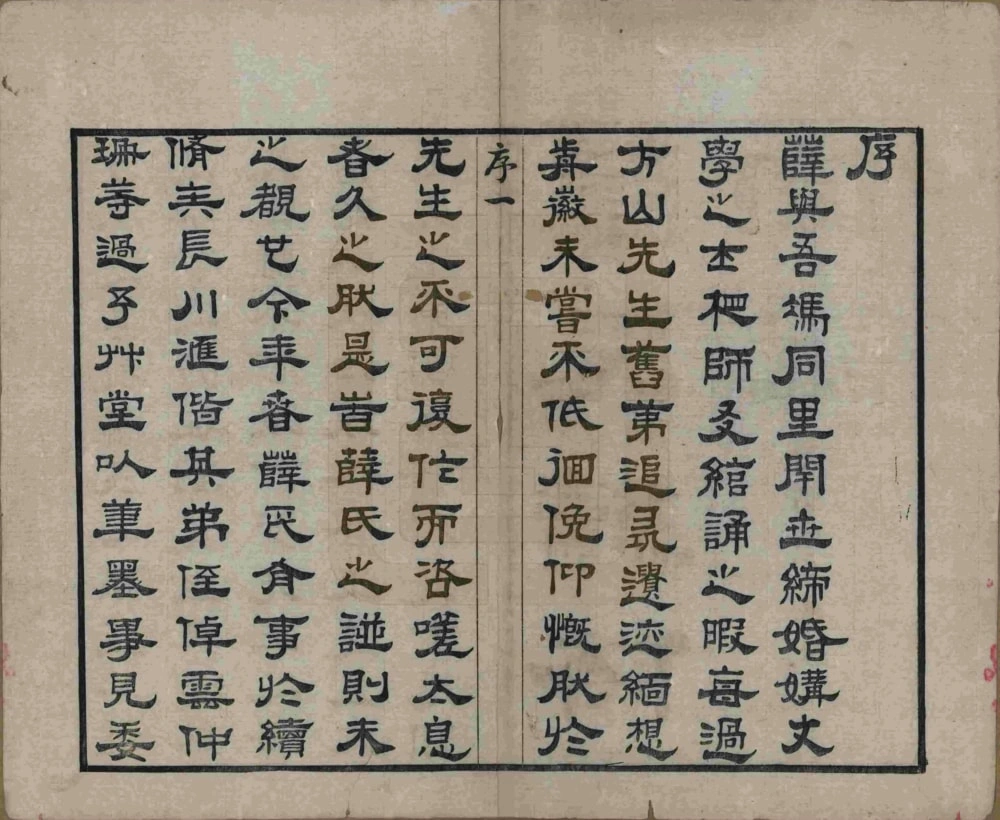 序
薛與吾馮同里閈世締婚媾文
學之士師友綰誦之暇每過
方山先生舊第追尋遺迹緬想
歬徽未嘗不低徊俛仰慨肰於
序一
先生之不可復作而咨嗟太息
者久之肰是昔薛氏之諩則未
之覩也今年春薛氏有事於續
脩矣長川滙偕其弟侄倬雲仲
珊等過予艸堂以筆墨事見委